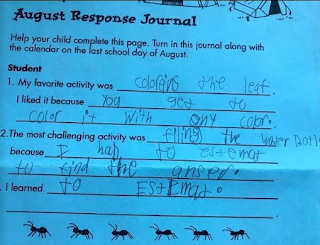 August Response Journal
Help your child complete this page. Turn in this journal along with
the calendar on the last school day of August.
Student
1. My favorite activity was coloring the leaf.
I liked it because you get to
color it with any color.
2. The most challenging activity was filling the water
because I had to estemat
to find the anser.
I learned to Estemat.